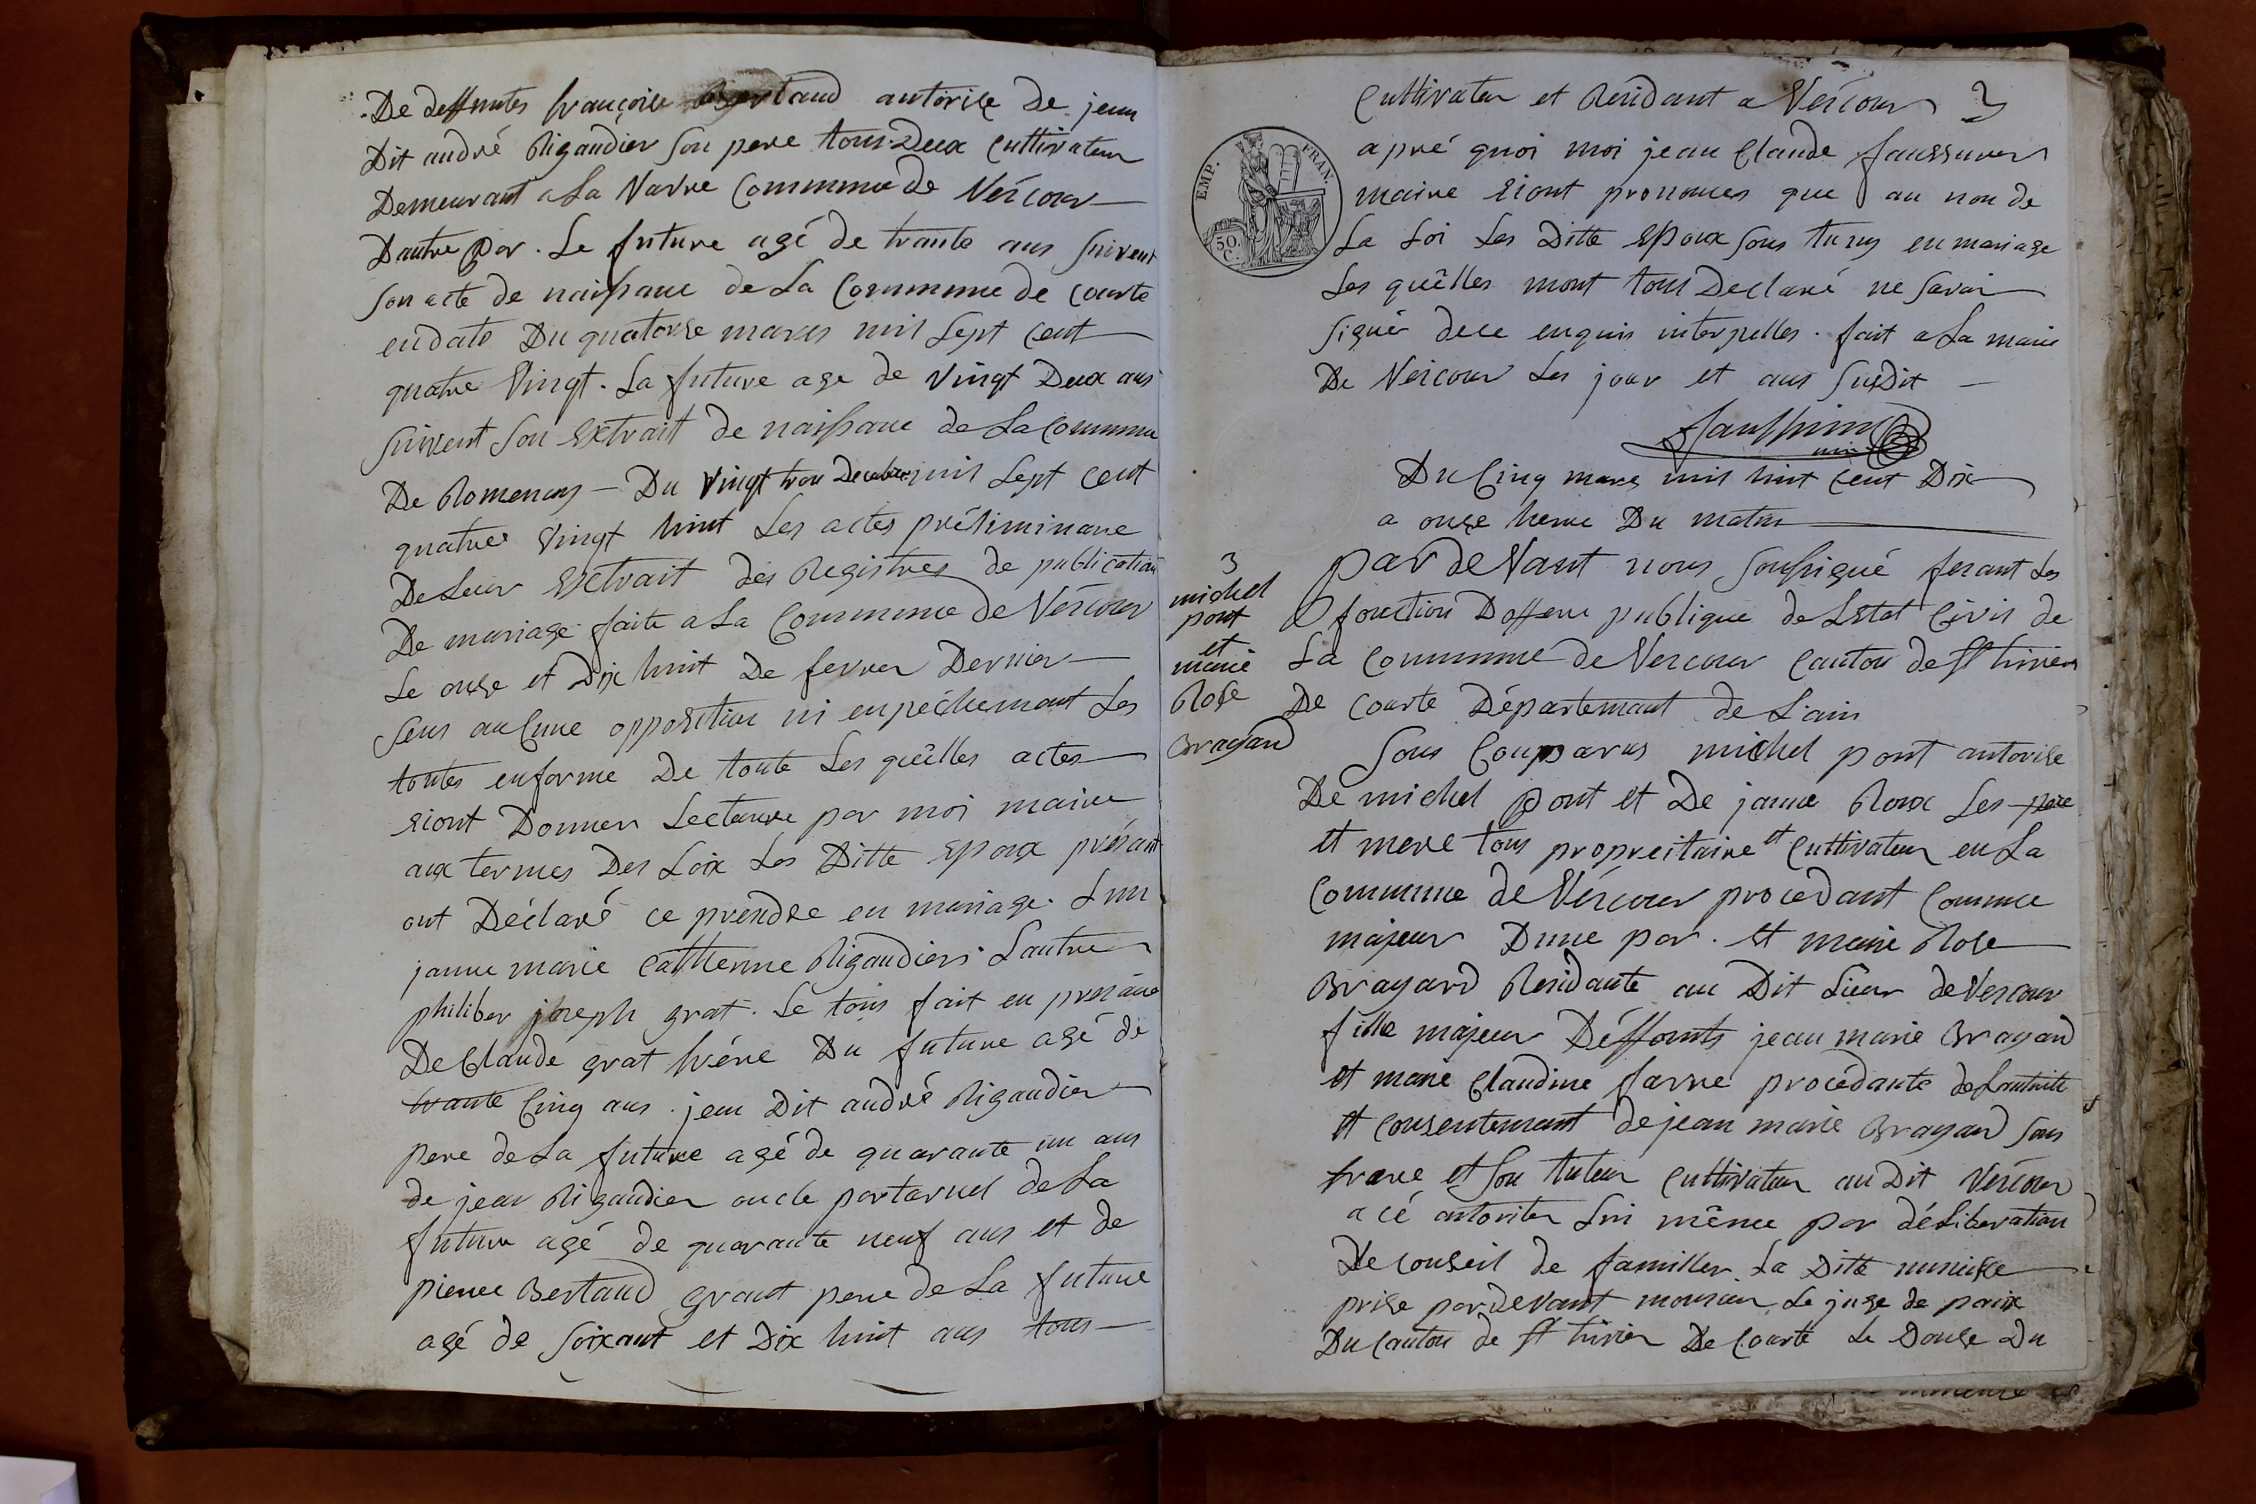 De deffuntes françoise Bertaud autorise de jean
Dit andré Rigaudier son pere tous Deux Cultivateur
Demeurant a La Varre Commune de Vercour
Dautre par. Le future agé de trante ans suivent
son acte de naissance de La Commune de Courte
en date Du quatorse mares mil sept Cent
quatre Vingt. La future age de Vingt Deux ans
suivent son Extrait de naissance de La Commune
De Romenay – Du Vingt trou Decembre mil sept cent
quatre Vingt huit Les actes préliminare
De Leur Extrait des Registres de publication
De mariage faite a La Commune de Vércour
Le onse et Dix huit De fevrer Dernier
sens auCune opposition ni enpéchemant Les
toutes enforme De toute Les quêlles actes
Eiont Donner Lectuure par moi maire
aux termes Des Loix Les Ditte Epoux présant
ont Déclaré ce prendre en mariage. Lun
janne marie Catherine Rigaudier. Lautre
philiber joseph grat. Le tous fait en presance
De Claude grat frére Du future agé de
trante Cinq ans. jean Dit andré Rigaudier
pere de La future agé de quarante un ans
de jean Rigaudier oncle partarnel de La
future agé de quarante neuf ans et de
pierre Bertaud grant pere de La future
agé de soixant et Dix huit ans tous
Cultivateur et Residant a Vercour 3
EMP. FRAN.
50. C.
apré quoi moi jean Claude faussurier
maire Eiont pronomces que au non de
La Loi Les Ditte Epoux sous tunis en mariage
Les quêlles mont tous Declaré ne savoir
signér dece enquis interpelles. fait a La mairie
De Vercour Les jour et ans susDit
Du Cinq mares mil huit Cent Dix
a onse heure Du matin
3
michel
pont
et
marie
Rose
Brayard
par deVant nous soussigné fesant Les
fonction Doffecie publique de LEtat Civil de
La Commune de Vercour Canton de St trivier
De Courte Départemant de L'ain
Sous Comparus michel pont autorise
De michel pont et De janne Roux Les pere
et mere tous propreitaire et Cultivateur en La
Commune de Vércour procedant Comme
majeur Dune par. et marie Rose
Brayard Residante au Dit Lieur de Vercour
fille majeur Déffounts jean marie Brayard
et marie Claudine farre procédante de Lautorite
et consentemant de jean marie Brayard sous
frare et son tuteur Cultivateur au Dit Vercour
a cé autoriter Lui même par déLiberation
De conseil de familler La Dite
prise pardeVant monsieur Le juge de paix
Du Canton de St trivier De Courte Le Douse Du